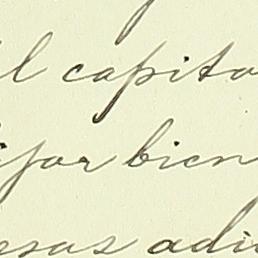 l capita
jar bien
esas adi